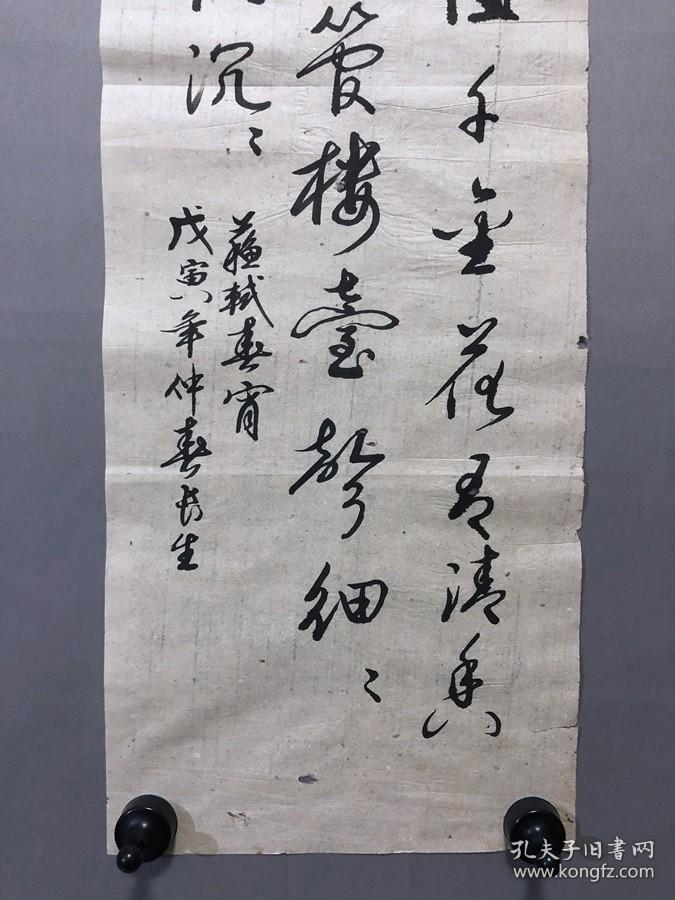 值千金花有清香
管楼臺聲细々
沉々
蘇軾春宵
戊寅年仲春长生
孔夫子旧书网
www.kongfz.com